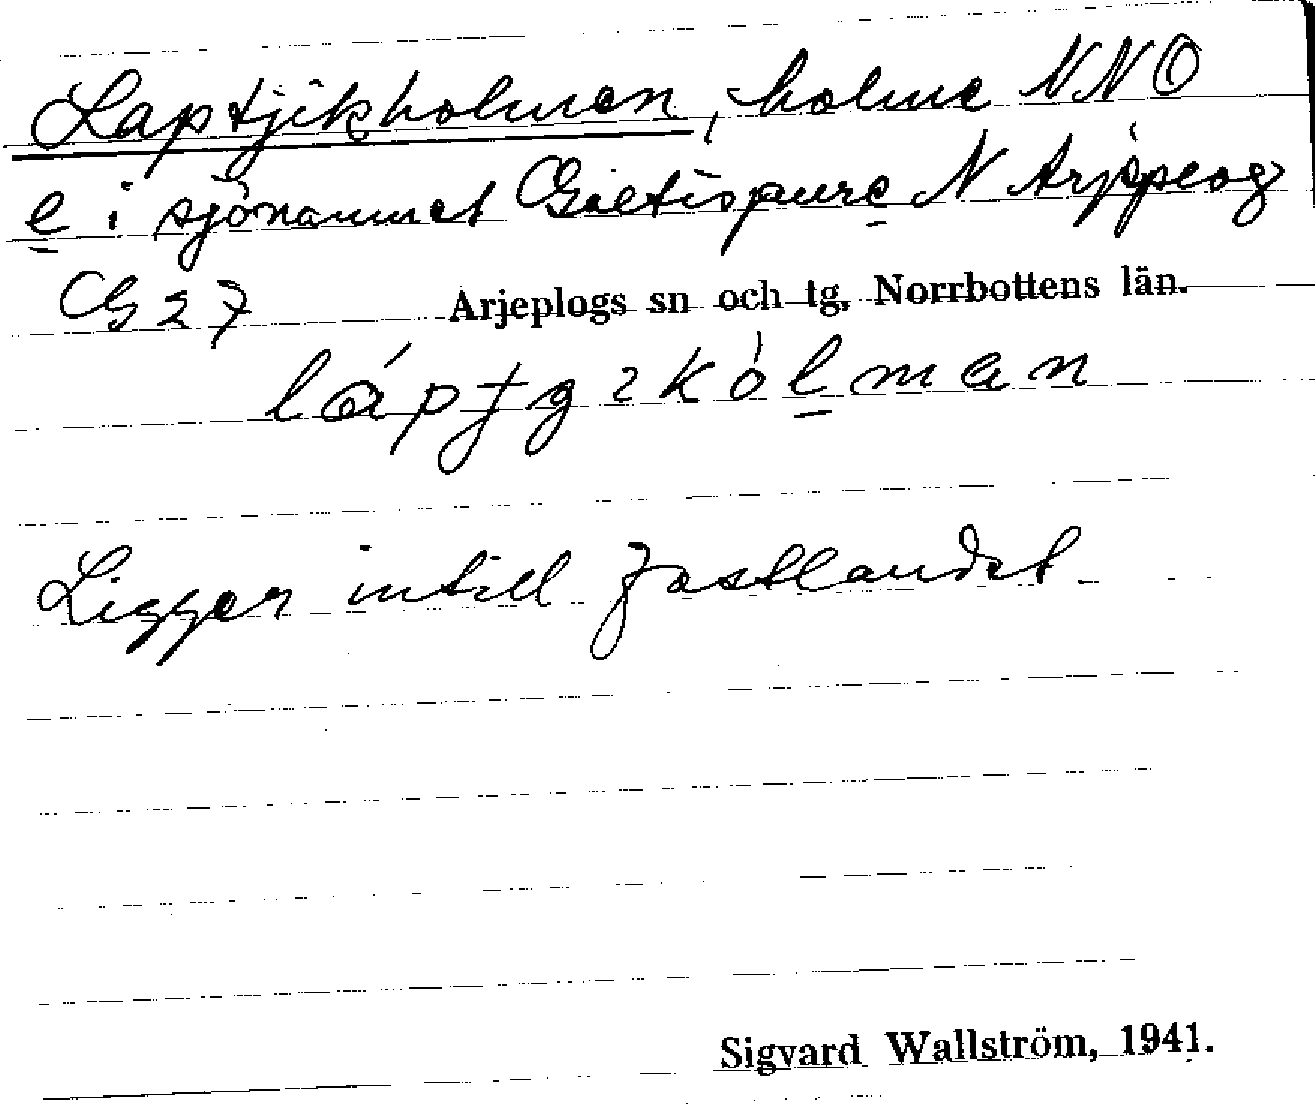 Laptjikholmen, holme NNO
e i sjönamnet Gietispure N Arjeplog
G 27 Arjeplogs sn och tg, Norrbottens län.
Ligger intill fastlandet
Sigvard Wallström, 1941.